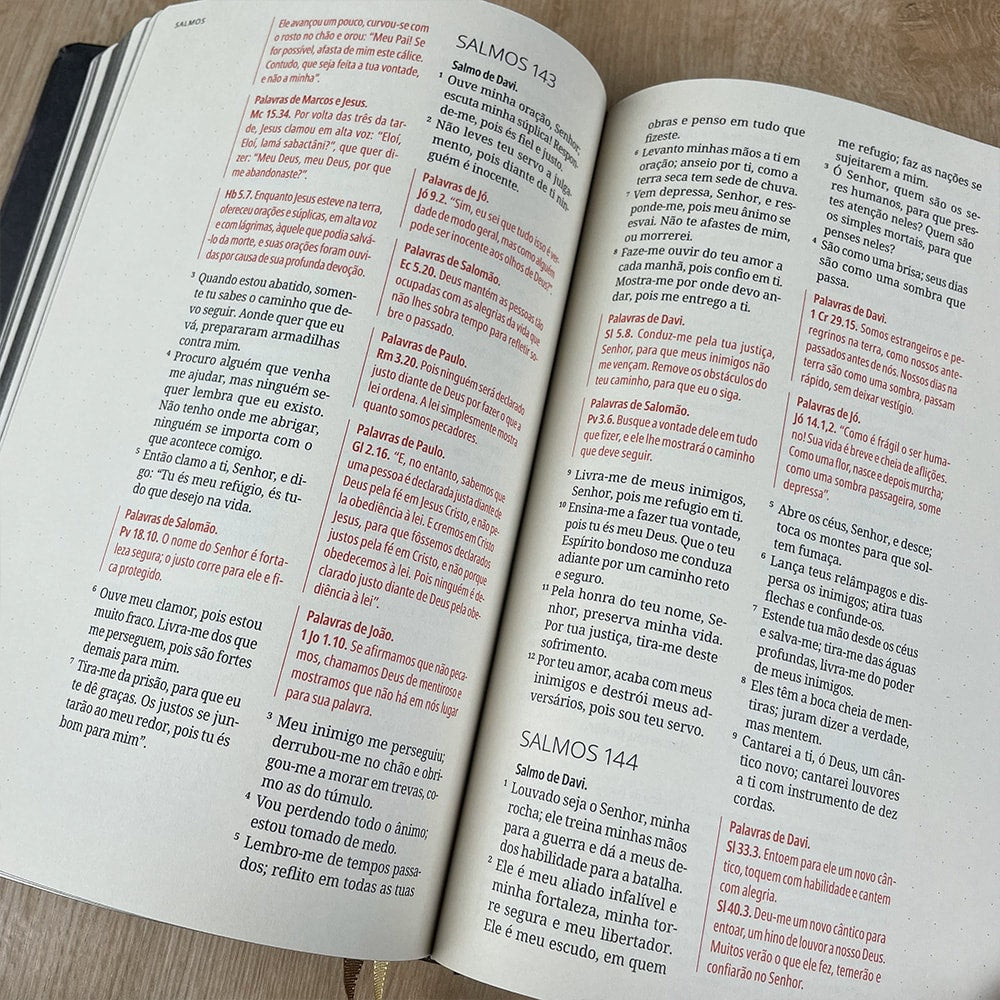 SALMOS
Ele avançou um pouco, curvou-se com
o rosto no chão e orou: “Meu Pai! Se
for possível, afasta de mim este cálice.
Contudo, que seja feita a tua vontade,
e não a minha”.
Palavras de Marcos e Jesus.
Mc 15.34. Por volta das três da tar-
de, Jesus clamou em alta voz: “Eloí,
Eloí, lamá sabactâni?”, que quer di-
zer: “Meu Deus, meu Deus, por que
me abandonaste?”.
Hb 5.7. Enquanto Jesus esteve na terra,
ofereceu orações e súplicas, em alta voz
e com lágrimas, àquele que podia salvá-
-lo da morte, e suas orações foram ouvi-
das por causa de sua profunda devoção.
3 Quando estou abatido, somen-
te tu sabes o caminho que de-
vo seguir. Aonde quer que eu
vá, prepararam armadilhas
contra mim.
4 Procuro alguém que venha
me ajudar, mas ninguém se-
quer lembra que eu existo.
Não tenho onde me abrigar,
ninguém se importa com o
que acontece comigo.
5 Então clamo a ti, Senhor, e di-
go: “Tu és meu refúgio, és tu-
do que desejo na vida.
Palavras de Salomão.
Pv 18.10. O nome do Senhor é forta-
leza segura; o justo corre para ele e fi-
ca protegido.
6 Ouve meu clamor, pois estou
muito fraco. Livra-me dos que
me perseguem, pois são fortes
demais para mim.
7 Tira-me da prisão, para que eu
te dê graças. Os justos se jun-
tarão ao meu redor, pois tu és
bom para mim”.
SALMOS 143
Salmo de Davi.
1 Ouve minha oração, Senhor,
escuta minha súplica! Respon-
de-me, pois és fiel e justo.
2 Não leves teu servo a julga-
mento, pois diante de ti nin-
guém é inocente.
Palavras de Jó.
Jó 9.2. “Sim, eu sei que tudo isso é ver-
dade de modo geral, mas como alguém
pode ser inocente aos olhos de Deus?”.
Palavras de Salomão.
Ec 5.20. Deus mantém as pessoas tão
ocupadas com as alegrias da vida que
não lhes sobra tempo para refletir so-
bre o passado.
Palavras de Paulo.
Rm 3.20. Pois ninguém será declarado
justo diante de Deus por fazer o que a
lei ordena. A lei simplesmente mostra
quanto somos pecadores.
Palavras de Paulo.
Gl 2.16. “E, no entanto, sabemos que
uma pessoa é declarada justa diante de
Deus pela fé em Jesus Cristo, e não pe-
la obediência à lei. E cremos em Cristo
Jesus, para que fôssemos declarados
justos pela fé em Cristo, e não porque
obedecemos à lei. Pois ninguém é de-
clarado justo diante de Deus pela obe-
diência à lei”.
Palavras de João.
1 Jo 1.10. Se afirmamos que não peca-
mos, chamamos Deus de mentiroso e
mostramos que não há em nós lugar
para sua palavra.
3 Meu inimigo me perseguiu;
derrubou-me no chão e obri-
gou-me a morar em trevas, co-
mo as do túmulo.
4 Vou perdendo todo o ânimo;
estou tomado de medo.
5 Lembro-me de tempos passa-
dos; reflito em todas as tuas
obras e penso em tudo que
fizeste.
6 Levanto minhas mãos a ti em
oração; anseio por ti, como a
terra seca tem sede de chuva.
7 Vem depressa, Senhor, e res-
ponde-me, pois meu ânimo se
esvai. Não te afastes de mim,
ou morrerei.
8 Faze-me ouvir do teu amor a
cada manhã, pois confio em ti.
Mostra-me por onde devo an-
dar, pois me entrego a ti.
Palavras de Davi.
Sl 5.8. Conduz-me pela tua justiça,
Senhor, para que meus inimigos não
me vençam. Remove os obstáculos do
teu caminho, para que eu o siga.
Palavras de Salomão.
Pv 3.6. Busque a vontade dele em tudo
que fizer, e ele lhe mostrará o caminho
que deve seguir.
9 Livra-me de meus inimigos,
Senhor, pois me refugio em ti.
10 Ensina-me a fazer tua vontade,
pois tu és meu Deus. Que o teu
Espírito bondoso me conduza
adiante por um caminho reto
e seguro.
11 Pela honra do teu nome, Se-
nhor, preserva minha vida.
Por tua justiça, tira-me deste
sofrimento.
12 Por teu amor, acaba com meus
inimigos e destrói meus ad-
versários, pois sou teu servo.
SALMOS 144
Salmo de Davi.
1 Louvado seja o Senhor, minha
rocha; ele treina minhas mãos
para a guerra e dá a meus de-
dos habilidade para a batalha.
2 Ele é meu aliado infalível e
minha fortaleza, minha tor-
re segura e meu libertador.
Ele é meu escudo, em quem
me refugio; faz as nações se
sujeitarem a mim.
3 Ó Senhor, quem são os se-
res humanos, para que pres-
tes atenção neles? Quem são
os simples mortais, para que
penses neles?
4 São como uma brisa; seus dias
são como uma sombra que
passa.
Palavras de Davi.
1 Cr 29.15. Somos estrangeiros e pe-
regrinos na terra, como nossos ante-
passados antes de nós. Nossos dias na
terra são como uma sombra, passam
rápido, sem deixar vestígio.
Palavras de Jó.
Jó 14.1,2. “Como é frágil o ser huma-
no! Sua vida é breve e cheia de aflições.
Como uma flor, nasce e depois murcha;
como uma sombra passageira, some
depressa”.
5 Abre os céus, Senhor, e desce;
toca os montes para que sol-
tem fumaça.
6 Lança teus relâmpagos e dis-
persa os inimigos; atira tuas
flechas e confunde-os.
7 Estende tua mão desde os céus
e salva-me; tira-me das águas
profundas, livra-me do poder
de meus inimigos.
8 Eles têm a boca cheia de men-
tiras; juram dizer a verdade,
mas mentem.
9 Cantarei a ti, ó Deus, um cân-
tico novo; cantarei louvores
a ti com instrumento de dez
cordas.
Palavras de Davi.
Sl 33.3. Entoem para ele um novo cân-
tico, toquem com habilidade e cantem
com alegria.
Sl 40.3. Deu-me um novo cântico para
entoar, um hino de louvor a nosso Deus.
Muitos verão o que ele fez, temerão e
confiarão no Senhor.